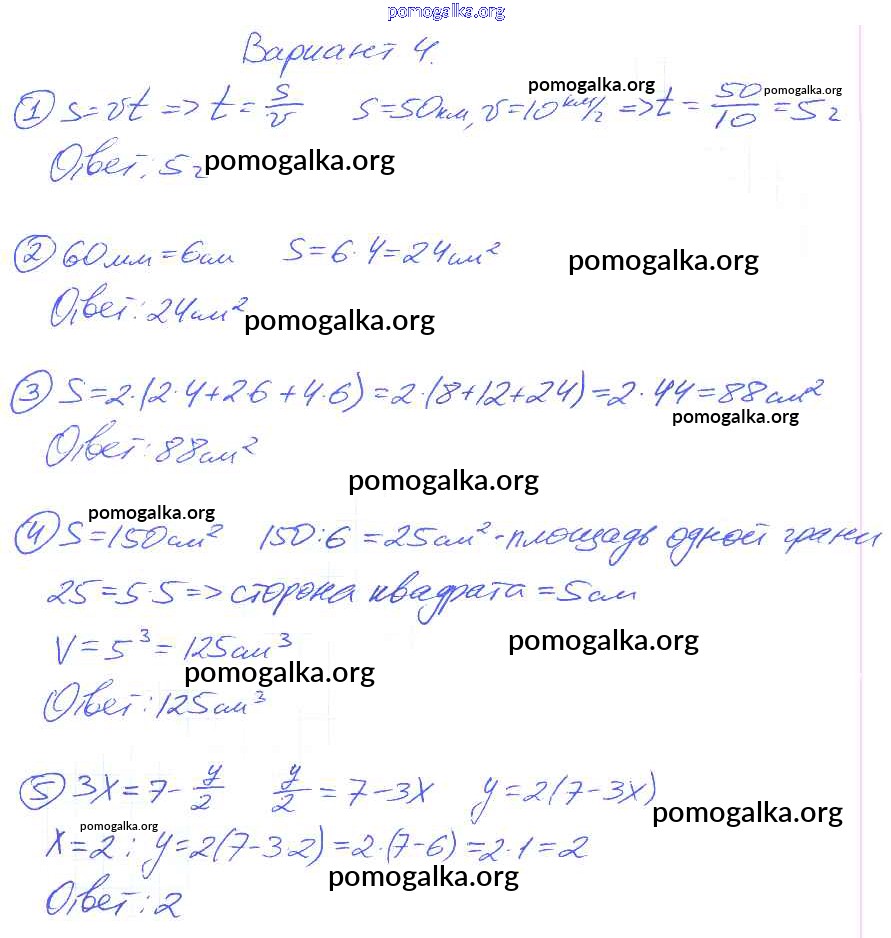 pomogalka.org
Вариант 4.
① S=vt => t = S/v S=50км, v=10 км/ч => t = 50/10 = 5ч
pomogalka.org pomogalka.org
Ответ: 5ч pomogalka.org
② 60мм=6см S=6·4=24см² pomogalka.org
Ответ: 24см² pomogalka.org
③ S=2·(2·4+2·6+4·6)=2·(8+12+24)=2·44=88см²
pomogalka.org
Ответ: 88см²
pomogalka.org
pomogalka.org
④ S=150см² 150:6=25см² - площадь одной грани
25=5·5=> сторона квадрата = 5см
V=5³=125см³ pomogalka.org
pomogalka.org
Ответ: 125см³
⑤ 3x=7-y/2 y/2=7-3x y=2(7-3x)
pomogalka.org pomogalka.org
x=2; y=2(7-3·2)=2·(7-6)=2·1=2
pomogalka.org
Ответ: 2